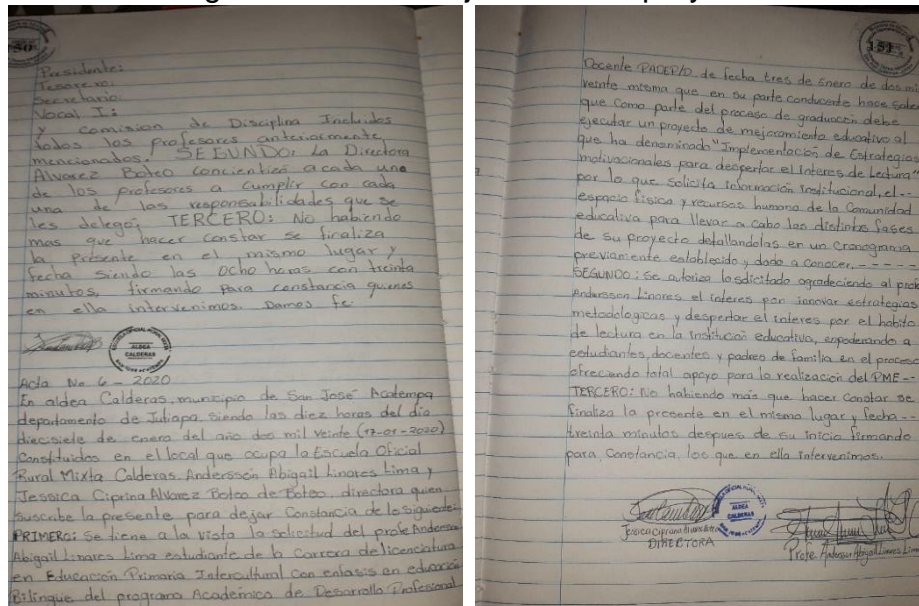 150
Presidente:
Tesorero:
Secretario:
Vocal I:
y comision de Disciplina Incluidos
todos los profesores anteriormente
mencionados. SEGUNDO: La Directora
Alvarez Boteo concientizó a cada uno
de los profesores a cumplir con cada
una de las responsabilidades que se
les delegó; TERCERO: No habiendo
mas que hacer constar se finaliza
la presente en el mismo lugar y
fecha siendo las ocho horas con treinta
minutos, firmando para constancia quienes
en ella intervenimos. Damos fe.
ALDEA
CALDERAS
Acta No 6 - 2020
En aldea Calderas, municipio de San José Acatempa
departamento de Jutiapa, siendo las diez horas del día
diecisiete de enero del año dos mil veinte (17-01-2020)
Constituidos en el local que ocupa la Escuela Oficial
Rural Mixta Calderas. Andersson Abigail Linares Lima y
Jessica Ciprina Alvarez Boteo de Boteo, directora quien
suscribe la presente para dejar Constancia de lo siguiente:
PRIMERO: se tiene a la vista la solicitud del profe Andersson
Abigail Linares Lima estudiante de la Carrera de licenciatura
en Educación Primaria Intercultural con enfasis en educación
Bilingue del programa Académico de Desarrollo Profesional
151
Docente PADEP/D de fecha tres de enero de dos mil
veinte misma que en su parte conducente hace saber
que como parte del proceso de graduación debe
ejecutar un proyecto de mejoramiento educativo al
que ha denominado "Implementación de Estrategias
motivacionales para despertar el interes de Lectura"
por lo que solicita información institucional, el--
espacio fisico y recursos humano de la Comunidad
educativa para llevar a cabo las distintas fases
de su proyecto detallandolas en un Cronograma
previamente establecido y dado a conocer. - - - - -
SEGUNDO: se autoriza lo solicitado agradeciendo al profe
Andersson Linares el interes por innovar estrategias
metodologicas y despertar el interes por el habito
de lectura en la institución educativa, empoderando a
estudiantes, docentes y padres de familia en el proceso
ofreciendo total apoyo para la realización del PME--
TERCERO: No habiendo más que hacer Constar se
finaliza la presente en el mismo lugar y fecha--
treinta minutos despues de su inicio firmando
para, Constancia los que en ella intervenimos.
ALDEA
CALDERAS
Jessica Ciprina Alvarez Boteo
DIRECTORA
Profe. Andersson Abigail Linares Lima